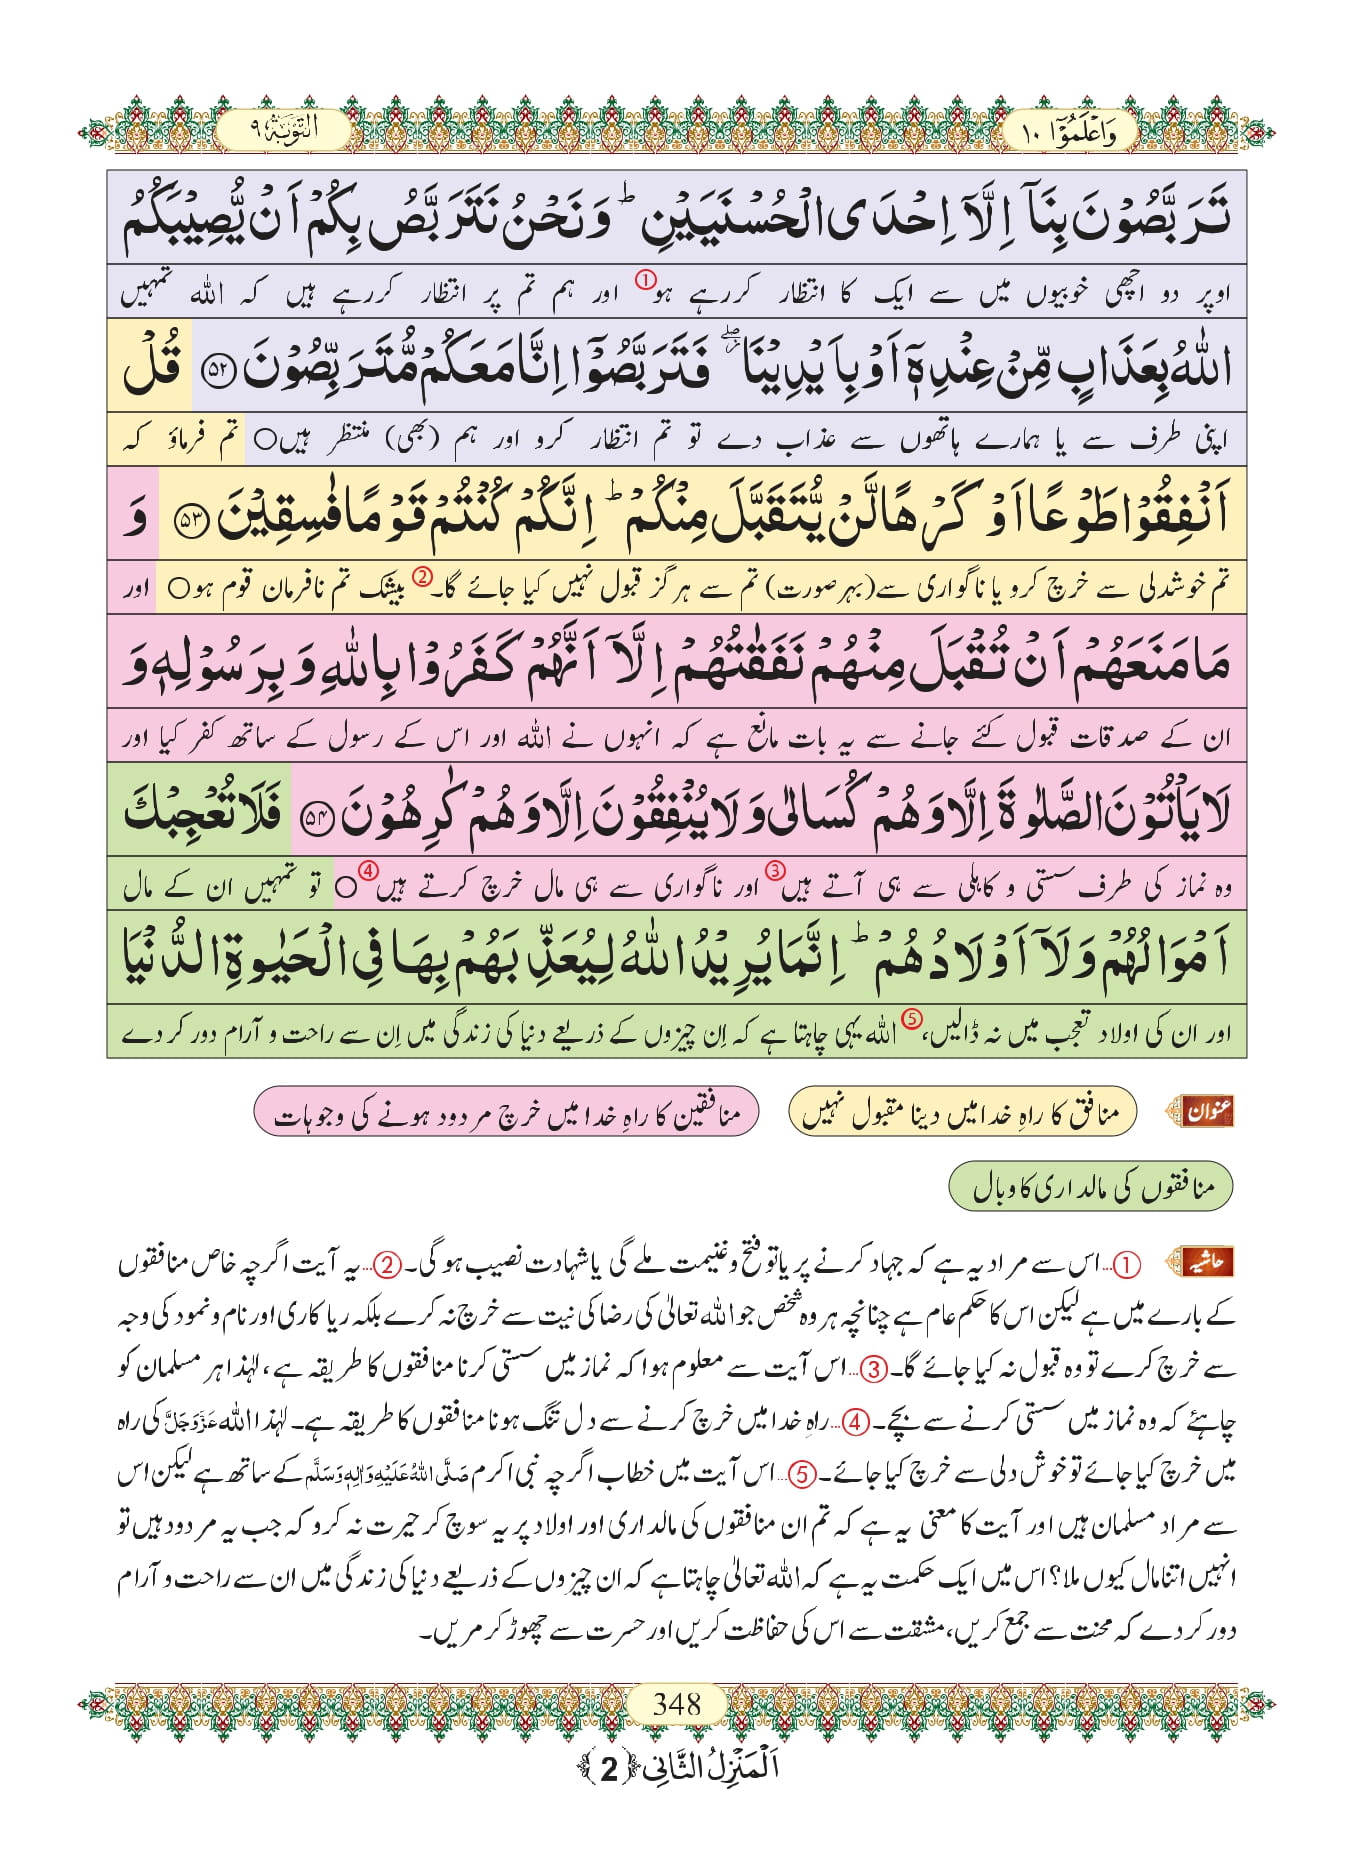 وَاعْلَمُوْۤا ۱۰
التَّوْبَة ۹
تَرَبَّصُوْنَ بِنَاۤ اِلَّاۤ اِحْدَى الْحُسْنَيَيْنِ ؕ وَ نَحْنُ نَتَرَبَّصُ بِكُمْ اَنْ يُّصِيْبَكُمُ
اوپر دو اچھی خوبیوں میں سے ایک کا انتظار کررہے ہو① اور ہم تم پر انتظار کررہے ہیں کہ اللہ تمہیں
اللّٰهُ بِعَذَابٍ مِّنْ عِنْدِهٖۤ اَوْ بِاَيْدِيْنَا ۖؗ فَتَرَبَّصُوْۤا اِنَّا مَعَكُمْ مُّتَرَبِّصُوْنَ ﴿۵۲﴾ قُلْ
اپنی طرف سے یا ہمارے ہاتھوں سے عذاب دے تو تم انتظار کرو اور ہم (بھی) منتظر ہیں○ تم فرماؤ کہ
اَنْفِقُوْا طَوْعًا اَوْ كَرْهًا لَّنْ يُّتَقَبَّلَ مِنْكُمْ ؕ اِنَّكُمْ كُنْتُمْ قَوْمًا فٰسِقِيْنَ ﴿۵۳﴾ وَ
تم خوشدلی سے خرچ کرو یا ناگواری سے(بہرصورت) تم سے ہرگز قبول نہیں کیا جائے گا۔② بیشک تم نافرمان قوم ہو○ اور
مَا مَنَعَهُمْ اَنْ تُقْبَلَ مِنْهُمْ نَفَقٰتُهُمْ اِلَّاۤ اَنَّهُمْ كَفَرُوْا بِاللّٰهِ وَ بِرَسُوْلِهٖ وَ
ان کے صدقات قبول کئے جانے سے یہ بات مانع ہے کہ انہوں نے اللہ اور اس کے رسول کے ساتھ کفر کیا اور
لَا يَاْتُوْنَ الصَّلٰوةَ اِلَّا وَ هُمْ كُسَالٰى وَ لَا يُنْفِقُوْنَ اِلَّا وَ هُمْ كٰرِهُوْنَ ﴿۵۴﴾ فَلَا تُعْجِبْكَ
وہ نماز کی طرف سستی و کاہلی سے ہی آتے ہیں③ اور ناگواری سے ہی مال خرچ کرتے ہیں④○ تو تمہیں ان کے مال
اَمْوَالُهُمْ وَ لَاۤ اَوْلَادُهُمْ ؕ اِنَّمَا يُرِيْدُ اللّٰهُ لِيُعَذِّبَهُمْ بِهَا فِي الْحَيٰوةِ الدُّنْيَا
اور ان کی اولاد تعجب میں نہ ڈالیں،⑤ اللہ یہی چاہتا ہے کہ اِن چیزوں کے ذریعے دنیا کی زندگی میں اِن سے راحت و آرام دور کر دے
عنوان منافق کا راہِ خدا میں دینا مقبول نہیں منافقین کا راہِ خدا میں خرچ مردود ہونے کی وجوہات
منافقوں کی مالداری کا وبال
حاشیہ ①…اس سے مراد یہ ہے کہ جہاد کرنے پر یا تو فتح و غنیمت ملے گی یا شہادت نصیب ہوگی۔ ②…یہ آیت اگرچہ خاص منافقوں
کے بارے میں ہے لیکن اس کا حکم عام ہے چنانچہ ہر وہ شخص جو اللہ تعالیٰ کی رضا کی نیت سے خرچ نہ کرے بلکہ ریاکاری اور نام و نمود کی وجہ
سے خرچ کرے تو وہ قبول نہ کیا جائے گا۔ ③…اس آیت سے معلوم ہوا کہ نماز میں سستی کرنا منافقوں کا طریقہ ہے، لہٰذا ہر مسلمان کو
چاہئے کہ وہ نماز میں سستی کرنے سے بچے۔ ④…راہِ خدا میں خرچ کرنے سے دل تنگ ہونا منافقوں کا طریقہ ہے۔ لہٰذا اللہ عَزَّوَجَلَّ کی راہ
میں خرچ کیا جائے تو خوش دلی سے خرچ کیا جائے۔ ⑤…اس آیت میں خطاب اگرچہ نبی اکرم صَلَّی اللہُ عَلَیْہِ وَاٰلِہٖ وَسَلَّم کے ساتھ ہے لیکن اس
سے مراد مسلمان ہیں اور آیت کا معنی یہ ہے کہ تم ان منافقوں کی مالداری اور اولاد پر یہ سوچ کر حیرت نہ کرو کہ جب یہ مردود ہیں تو
انہیں اتنا مال کیوں ملا؟ اس میں ایک حکمت یہ ہے کہ اللہ تعالیٰ چاہتا ہے کہ ان چیزوں کے ذریعے دنیا کی زندگی میں ان سے راحت و آرام
دور کردے کہ محنت سے جمع کریں، مشقت سے اس کی حفاظت کریں اور حسرت سے چھوڑ کر مریں۔
348
اَلْمَنْزِلُ الثَّانِی ﴿2﴾